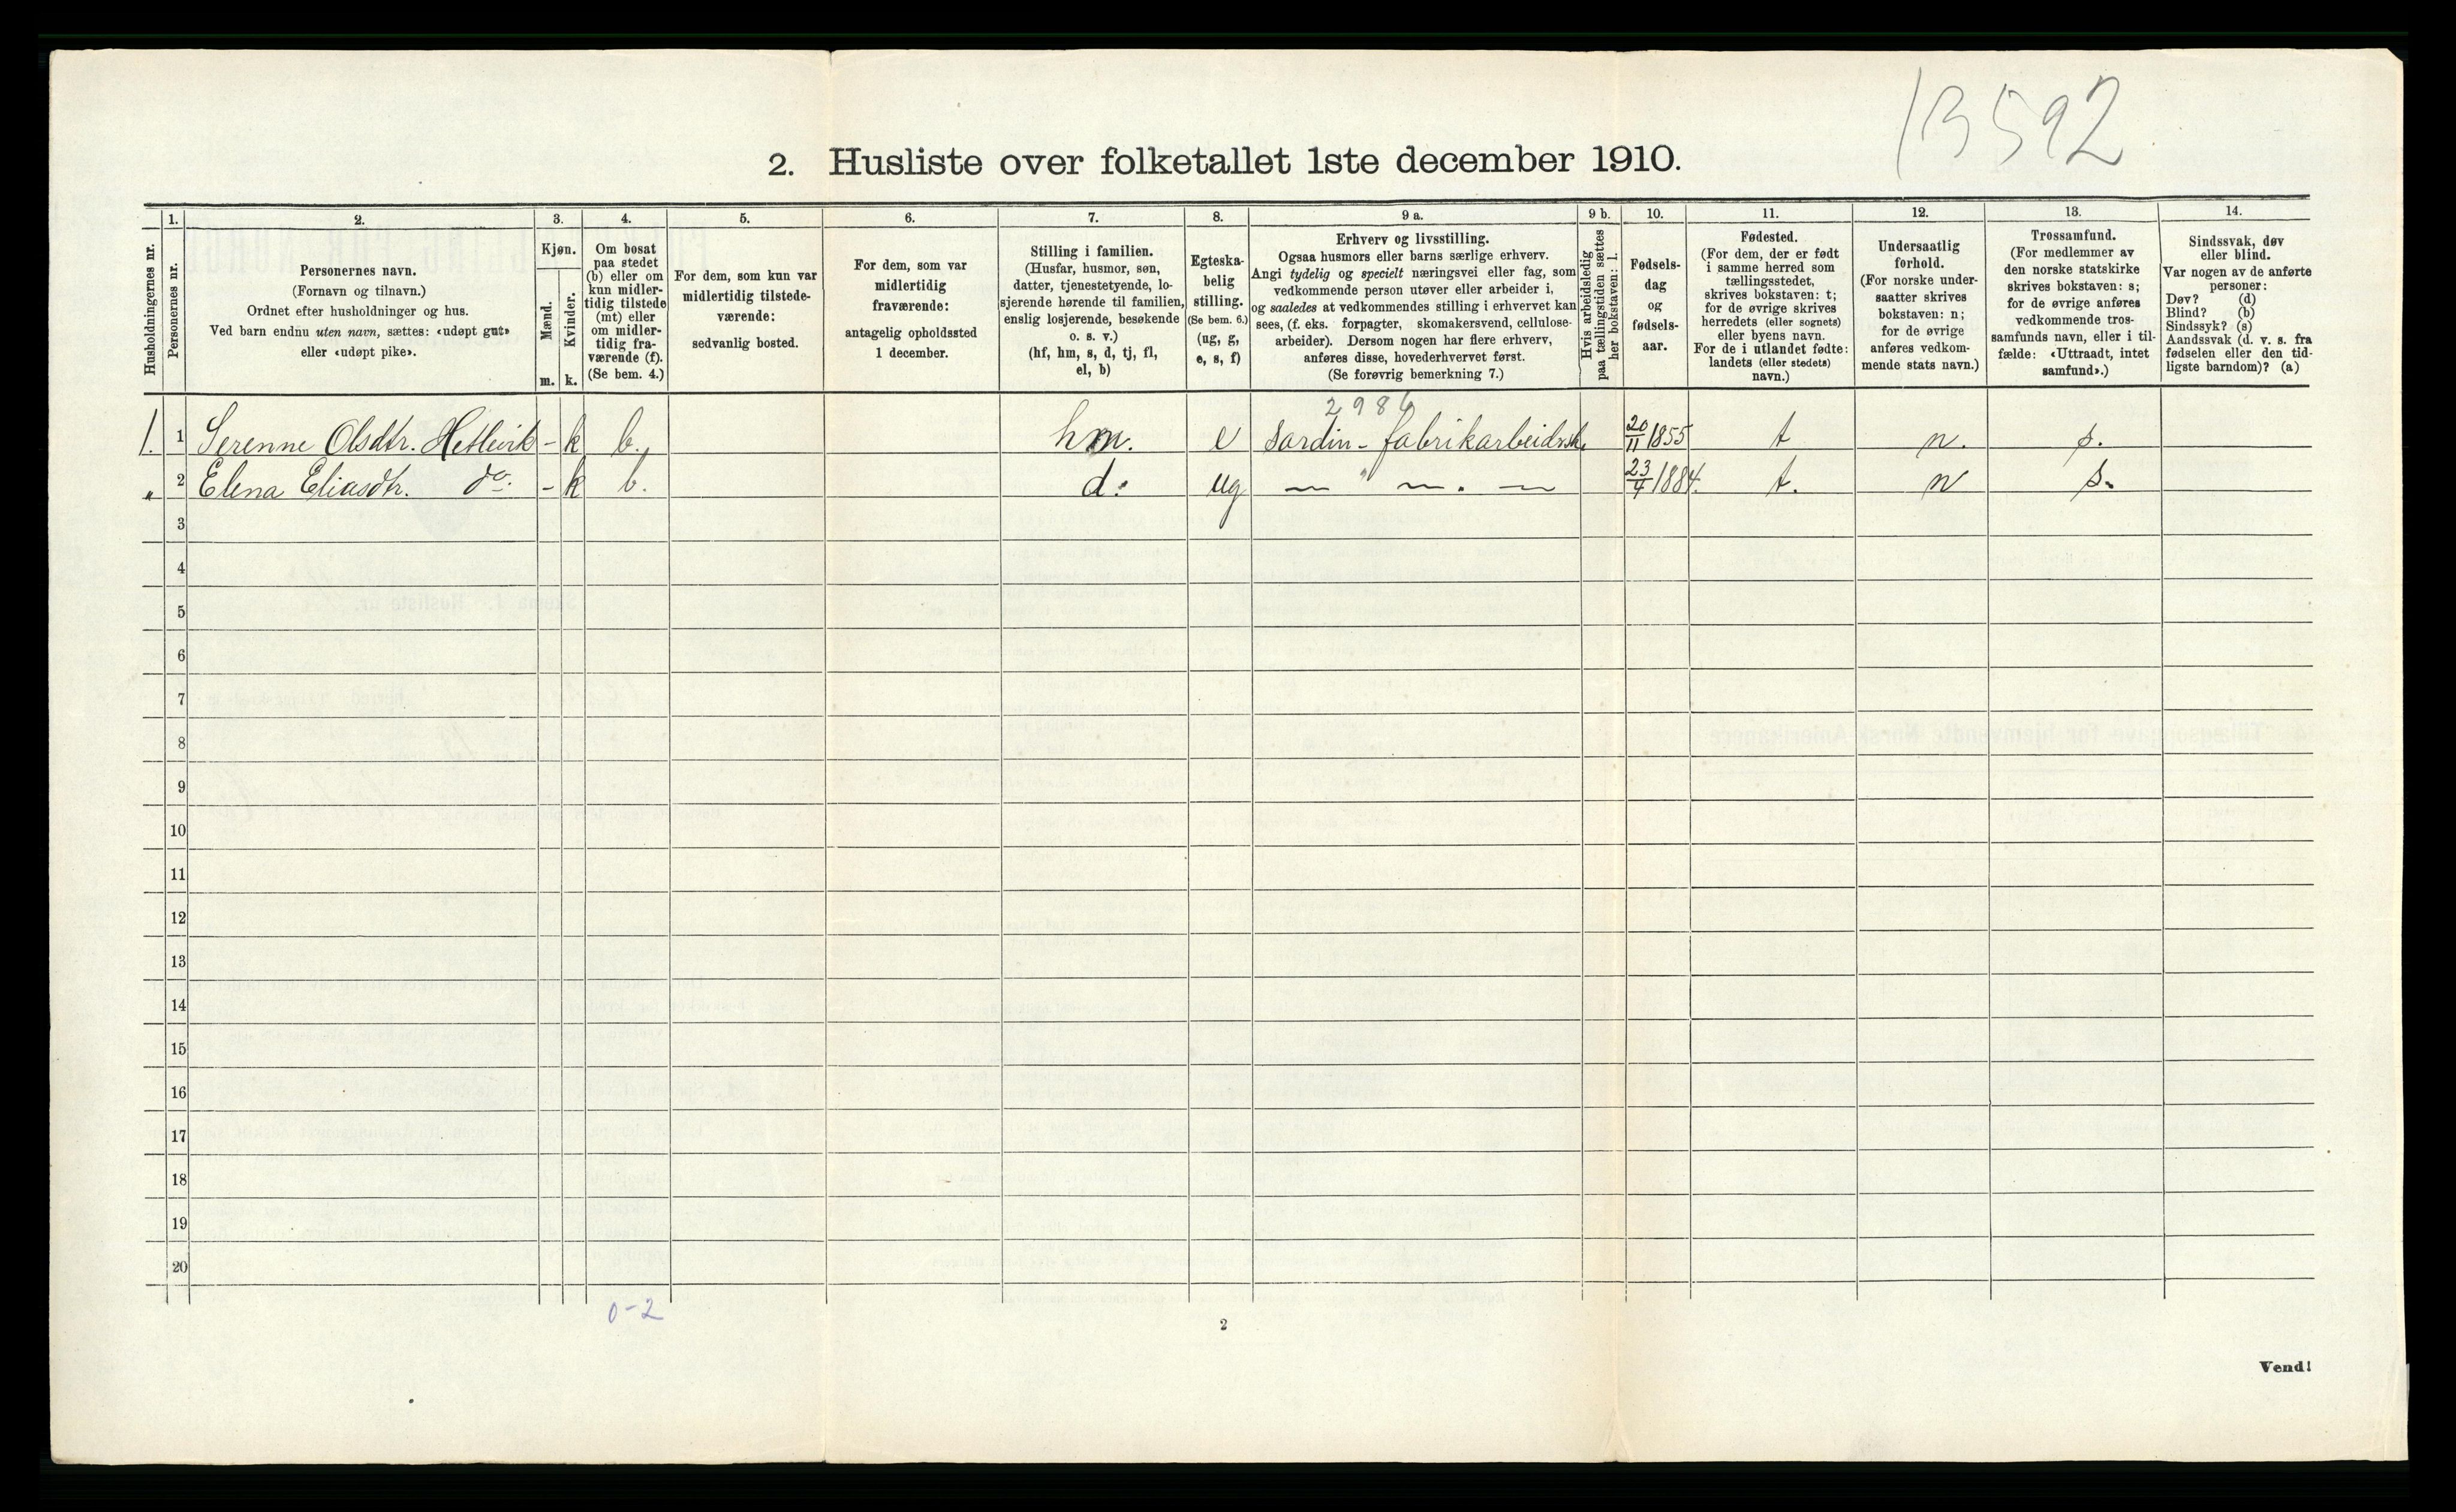 13592
2. Husliste over folketallet 1ste december 1910.
Husholdningernes nr.
1.
Personernes nr.
2.
Personernes navn.
(Fornavn og tilnavn.)
Ordnet efter husholdninger og hus.
Ved barn endnu uten navn, sættes: «udøpt gut»
eller «udøpt pike».
3.
Kjøn.
Mænd.
m.
Kvinder.
k.
4.
Om bosat
paa stedet
(b) eller om
kun midler-
tidig tilstede
(mt) eller
om midler-
tidig fra-
værende (f).
(Se bem. 4.)
5.
For dem, som kun var
midlertidig tilstede-
værende:
sedvanlig bosted.
6.
For dem, som var
midlertidig
fraværende:
antagelig opholdssted
1 december.
7.
Stilling i familien.
(Husfar, husmor, søn,
datter, tjenestetyende, lo-
sjerende hørende til familien,
enslig losjerende, besøkende
o. s. v.)
(hf, hm, s, d, tj, fl,
el, b)
8.
Egteska-
belig
stilling.
(Se bem. 6.)
(ug, g,
e, s, f)
9 a.
Erhverv og livsstilling.
Ogsaa husmors eller barns særlige erhverv.
Angi tydelig og specielt næringsvei eller fag, som
vedkommende person utøver eller arbeider i,
og saaledes at vedkommendes stilling i erhvervet kan
sees, (f. eks. forpagter, skomakersvend, cellulose-
arbeider). Dersom nogen har flere erhverv,
anføres disse, hovederhvervet først.
(Se forøvrig bemerkning 7.)
9 b.
Hvis arbeidsledig
paa tællingstiden sættes
her bokstaven: l.
10.
Fødsels-
dag
og
fødsels-
aar.
11.
Fødested.
(For dem, der er født
i samme herred som
tællingsstedet,
skrives bokstaven: t;
for de øvrige skrives
herredets (eller sognets)
eller byens navn.
For de i utlandet fødte:
landets (eller stedets)
navn.)
12.
Undersaatlig
forhold.
(For norske under-
saatter skrives
bokstaven: n;
for de øvrige
anføres vedkom-
mende stats navn.)
13.
Trossamfund.
(For medlemmer av
den norske statskirke
skrives bokstaven: s;
for de øvrige anføres
vedkommende tros-
samfunds navn, eller i til-
fælde: «Uttraadt, intet
samfund».)
14.
Sindssvak, døv
eller blind.
Var nogen av de anførte
personer:
Døv? (d)
Blind? (b)
Sindssyk? (s)
Aandssvak (d. v. s. fra
fødselen eller den tid-
ligste barndom)? (a)
2986
1. 1 Serenne Olsdtr. Hetlevik - k b. hm. e Sardin-fabrikarbeiderske 20/11 1855 t n. s.
" 2 Elena Eliasdtr. do. - k b. d: ug — " — . — 23/4 1884. t. n s.
3
4
5
6
7
8
9
10
11
12
13
14
15
16
17
18
19
20
0-2
2
Vend!